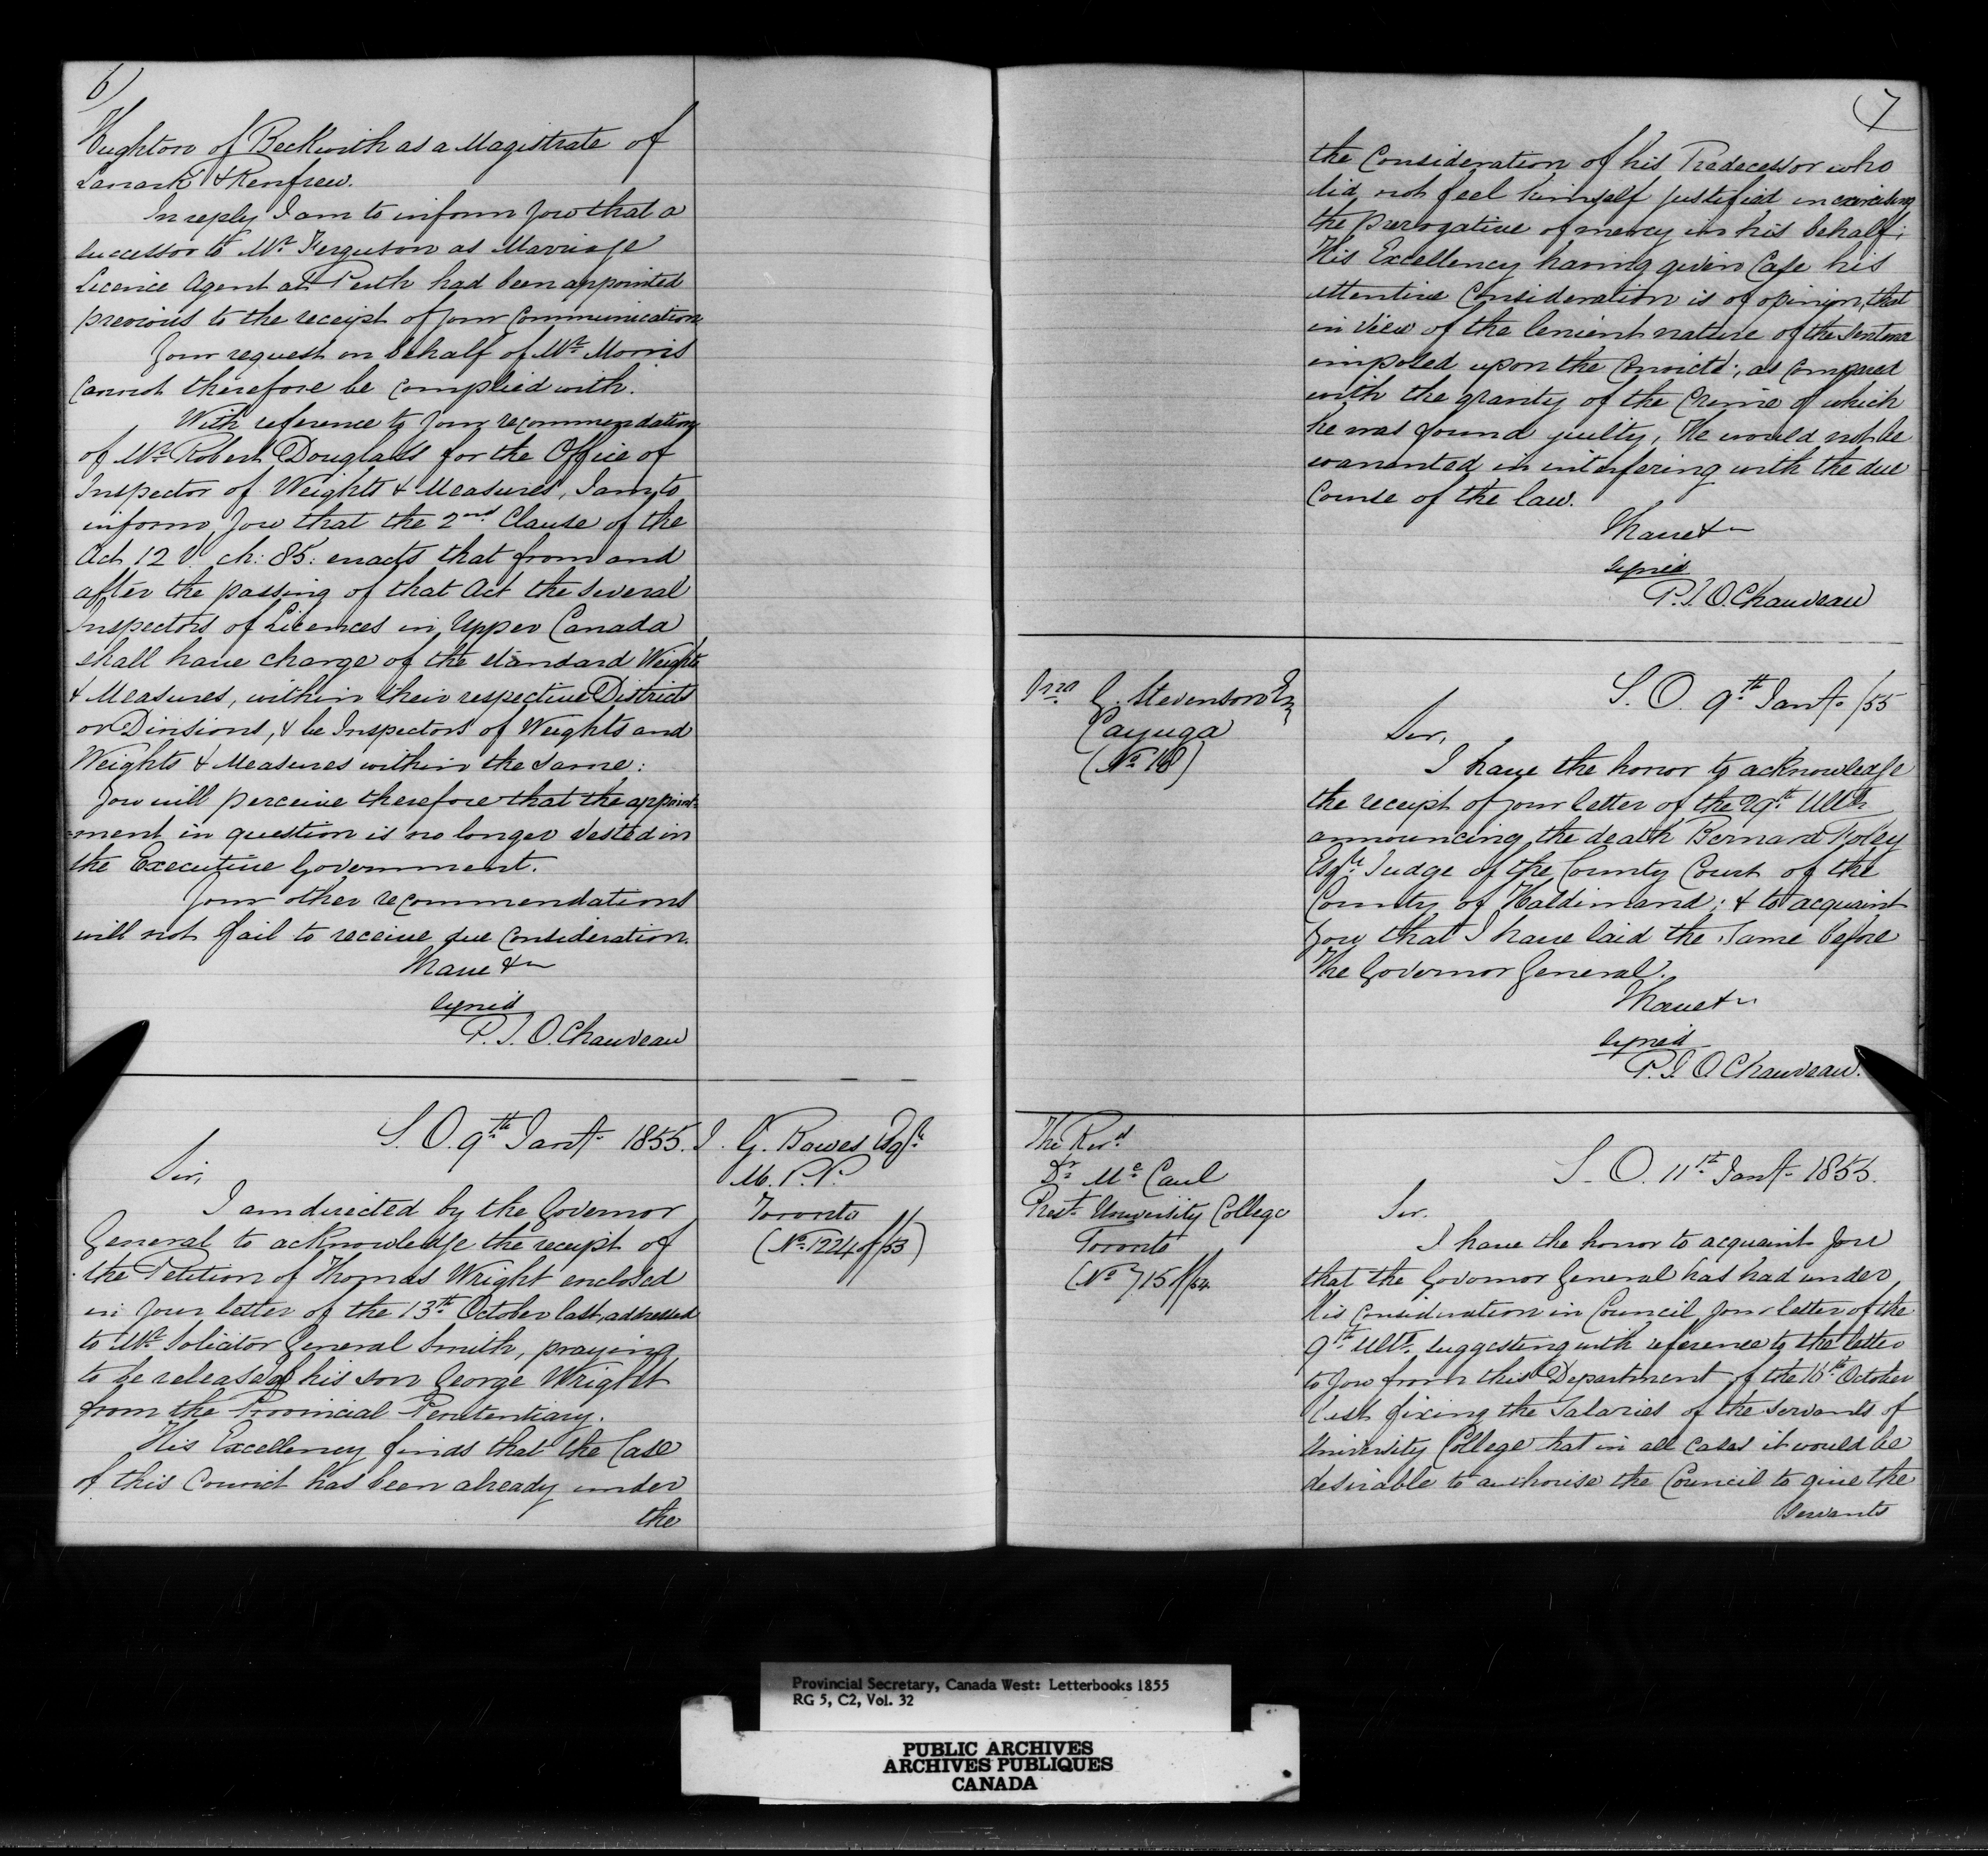 6)
Hughton of Beckwith as a Magistrate of
Lanark & Renfrew.
In reply I am to inform you that a
successor to Mr Ferguson as Marriage
Licence Agent at Perth had been appointed
previous to the receipt of your Communication
Your request on behalf of Mr Morris
cannot therefore be complied with.
With reference to your recommendation
of Mr Robert Douglass for the Office of
Inspector of Weights & Measures, I am to
inform you that the 2nd Clause of the
Act 12 V. ch: 85: enacts that from and
after the passing of that Act the several
Inspectors of Licences in Upper Canada
shall have charge of the standard Weights
& Measures, within their respective Districts
or Divisions, & be Inspectors of Weights and
Weights & Measures within the same:
You will perceive therefore that the appoint-
=ment in question is no longer vested in
the Executive Government.
Your other recommendations
will not fail to receive due consideration.
I have &c
signed
P. J. O. Chauveau
S. O. 9th Jany 1855.
J. G. Bowes Esqr
M. P. P.
Toronto
(No 1224 of /53)
Sir,
I am directed by the Governor
General to acknowledge the receipt of
the Petition of Thomas Wright enclosed
in your letter of the 13th October last, addressed
to Mr Solicitor General Smith, praying
to be released his son George Wright
from the Provincial Penitentiary.
His Excellency finds that the Case
of this Convict has been already under
the
7
the Consideration of his Predecessor who
did not feel himself justified in exercising
the prerogative of mercy in his behalf;
His Excellency having given Case his
attentive Consideration is of opinion, that
in view of the lenient nature of the Sentence
imposed upon the Convict, as compared
with the gravity of the Crime of which
he was found guilty, He would not be
warranted in interfering with the due
Course of the law.
I have &c
signed
P. J. O. Chauveau
G. Stevenson Esq
Cayuga
(No 18)
S. O. 9th Jany /55
Sir,
I have the honor to acknowledge
the receipt of your letter of the 29th Ulto
announcing the death Bernard Foley
Esqr Judge of the County Court of the
County of Haldimand; & to acquaint
you that I have laid the same before
The Governor General.
I have &c
signed
P. J. O. Chauveau.
The Revd
Dr McCaul
Prest University College
Toronto
(No 715 of /54
S. O. 11th Jany 1855.
Sir.
I have the honor to acquaint you
that the Governor General has had under
His consideration in Council your letter of the
9th Ulto. suggesting with reference to the letter
to you from this Department of the 16th October
last fixing the Salaries of the servants of
University College that in all cases it would be
desirable to authorise the Council to give the
servants
Provincial Secretary, Canada West: Letterbooks 1855
RG 5, C2, Vol. 32
PUBLIC ARCHIVES
ARCHIVES PUBLIQUES
CANADA